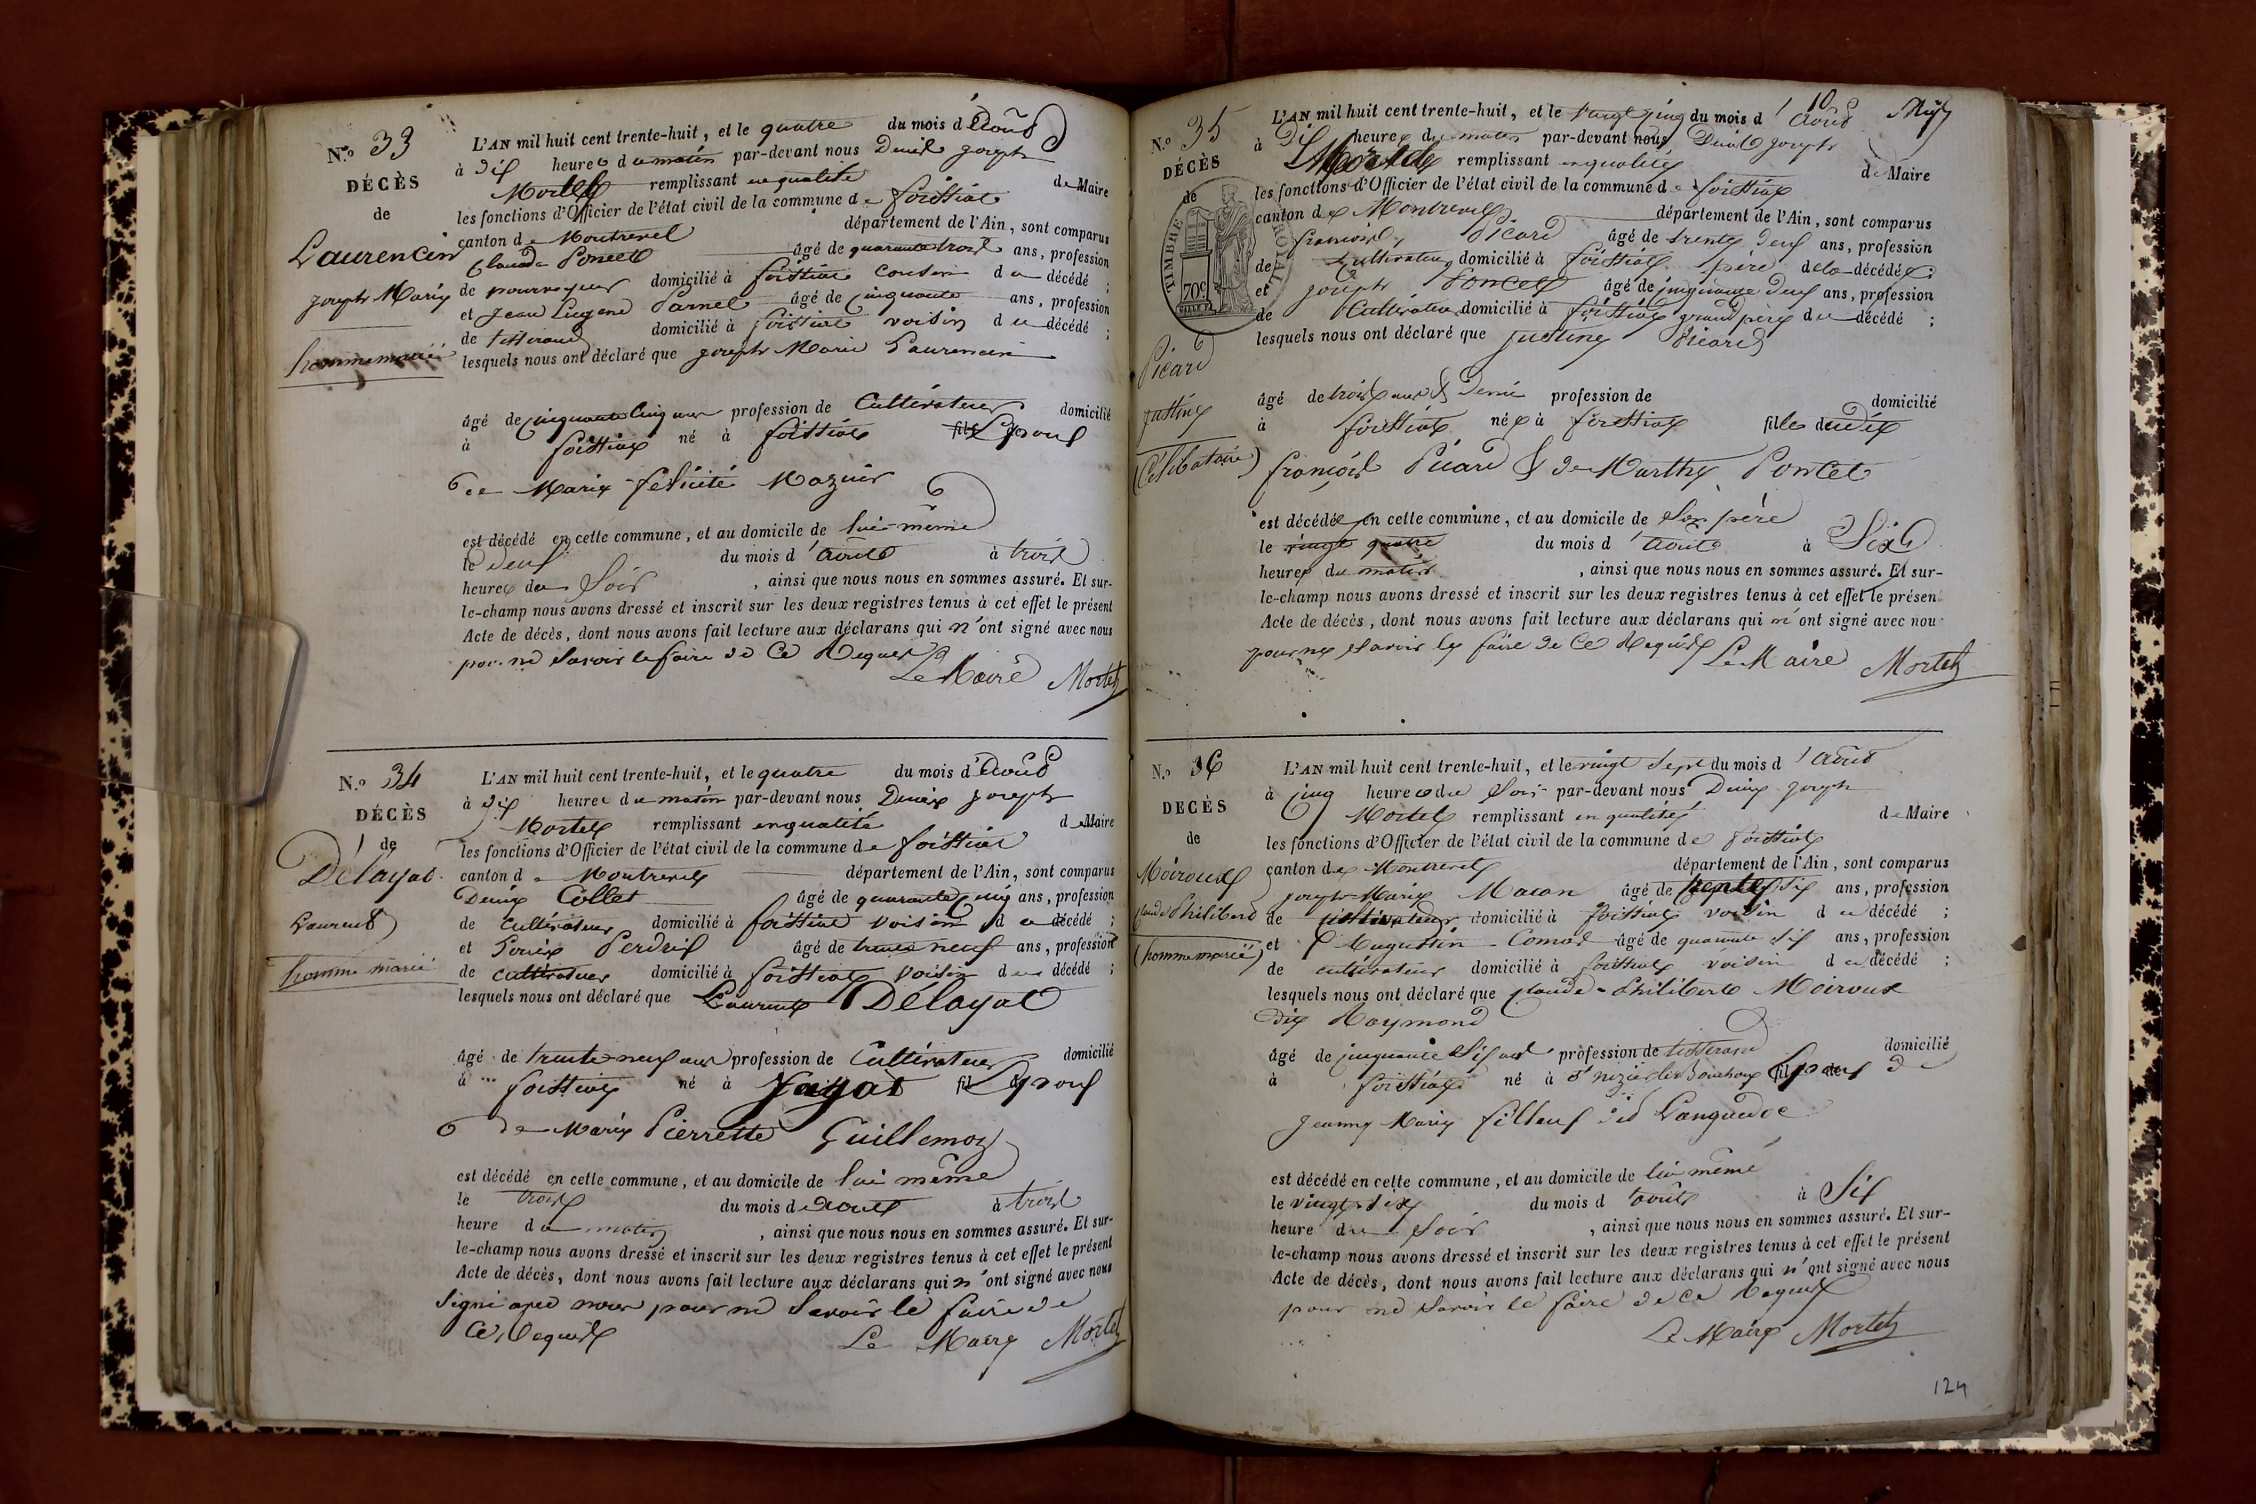 N.º 33
DÉCÈS
de
Laurencin
joseph Marie
homme marié
L'AN mil huit cent trente-huit, et le quatre du mois d'Août
à dix heures du matin par-devant nous Denis joseph
Mortel remplissant en qualité de Maire
les fonctions d'Officier de l'état civil de la commune de foissiat
canton de Montrevel département de l'Ain, sont comparus
Claude Poncet âgé de quarante trois ans, profession
de pourvoyeur domicilié à foissiat cousin du décédé ;
et jean Eugene Parnel âgé de cinquante ans, profession
de tisserand domicilié à foissiat voisin du décédé ;
lesquels nous ont déclaré que joseph Marie Laurencin
âgé de cinquante cinq ans profession de Cultivateur domicilié
à foissiat né à foissiat fils Epoux
de Marie félicité Mazuir
est décédé en cette commune, et au domicile de lui-même
le deux du mois d'août à trois
heures du Soir, ainsi que nous nous en sommes assuré. Et sur-
le-champ nous avons dressé et inscrit sur les deux registres tenus à cet effet le présent
Acte de décès, dont nous avons fait lecture aux déclarans qui n'ont signé avec nous
pour ne Savoir le faire de Ce Requis
Le Maire Mortel
N.º 34
DÉCÈS
de
Délayat
Laurent
homme marié
L'AN mil huit cent trente-huit, et le quatre du mois d'Août
à dix heures du matin par-devant nous Denis joseph
Mortel remplissant en qualité de Maire
les fonctions d'Officier de l'état civil de la commune de foissiat
canton de Montrevel département de l'Ain, sont comparus
Denis Collet âgé de quarante cinq ans, profession
de cultivateur domicilié à foissiat voisin du décédé ;
et Louis Perdrix âgé de trente neuf ans, profession
de cultivateur domicilié à foissiat voisin du décédé ;
lesquels nous ont déclaré que Laurent Délayat
âgé de trente-neuf ans profession de Cultivateur domicilié
à foissiat né à Jayat fils Epoux
de Marie Pierrette Guillemoz
est décédé en cette commune, et au domicile de lui même
le trois du mois d'août à trois
heure du matin, ainsi que nous nous en sommes assuré. Et sur-
le-champ nous avons dressé et inscrit sur les deux registres tenus à cet effet le présent
Acte de décès, dont nous avons fait lecture aux déclarans qui n'ont signé avec nous
Signé avec nous pour ne Savoir le faire de
Ce Requis Le Maire Mortel
10
N.º 35
DÉCÈS
de
TIMBRE ROYAL
70c
Picard
justine
(Célibataire)
L'AN mil huit cent trente-huit, et le vingt cinq du mois d'Août
à dix heures du matin par-devant nous Denis joseph
Mortel remplissant en qualité de Maire
les fonctions d'Officier de l'état civil de la commune de foissiat
canton de Montrevel département de l'Ain, sont comparus
françois Picard âgé de trente deux ans, profession
de Cultivateur domicilié à foissiat père de la décédée ;
et joseph Poncet âgé de cinquante deux ans, profession
de Cultivateur domicilié à foissiat grand père du décédé ;
lesquels nous ont déclaré que justine Picard
âgé de trois ans & demi profession de domicilié
à foissiat née à foissiat fille dudit
françois Picard & de Marthe Poncet
est décédée en cette commune, et au domicile de Son père
le vingt quatre du mois d'août à Six
heures du matin, ainsi que nous nous en sommes assuré. Et sur-
le-champ nous avons dressé et inscrit sur les deux registres tenus à cet effet le présen
Acte de décès, dont nous avons fait lecture aux déclarans qui n'ont signé avec nou
pour ne Savoir le faire de Ce Requis Le Maire Mortel
N.º 36
DÉCÈS
de
Moiroux
Claude Philibert
(homme marié)
L'AN mil huit cent trente-huit, et le vingt Sept du mois d'Août
à cinq heures du Soir par-devant nous Denis joseph
Mortel remplissant en qualité de Maire
les fonctions d'Officier de l'état civil de la commune de foissiat
canton de Montrevel département de l'Ain, sont comparus
joseph Marie Macon âgé de trente Six ans, profession
de Cultivateur domicilié à foissiat voisin du décédé ;
et Augustin Comas âgé de quarante Six ans, profession
de cultivateur domicilié à foissiat voisin du décédé ;
lesquels nous ont déclaré que Claude Philibert Moiroux
dit Raymond
âgé de cinquante Six ans profession de tisserand domicilié
à foissiat né à St nizier le Bouchoux fils Epoux de
jeanne Marie filleux dit Languedoc
est décédé en cette commune, et au domicile de lui même
le vingt Six du mois d'août à Six
heure du Soir, ainsi que nous nous en sommes assuré. Et sur-
le-champ nous avons dressé et inscrit sur les deux registres tenus à cet effet le présent
Acte de décès, dont nous avons fait lecture aux déclarans qui n'ont signé avec nous
pour ne Savoir le faire de Ce Requis
Le Maire Mortel
124